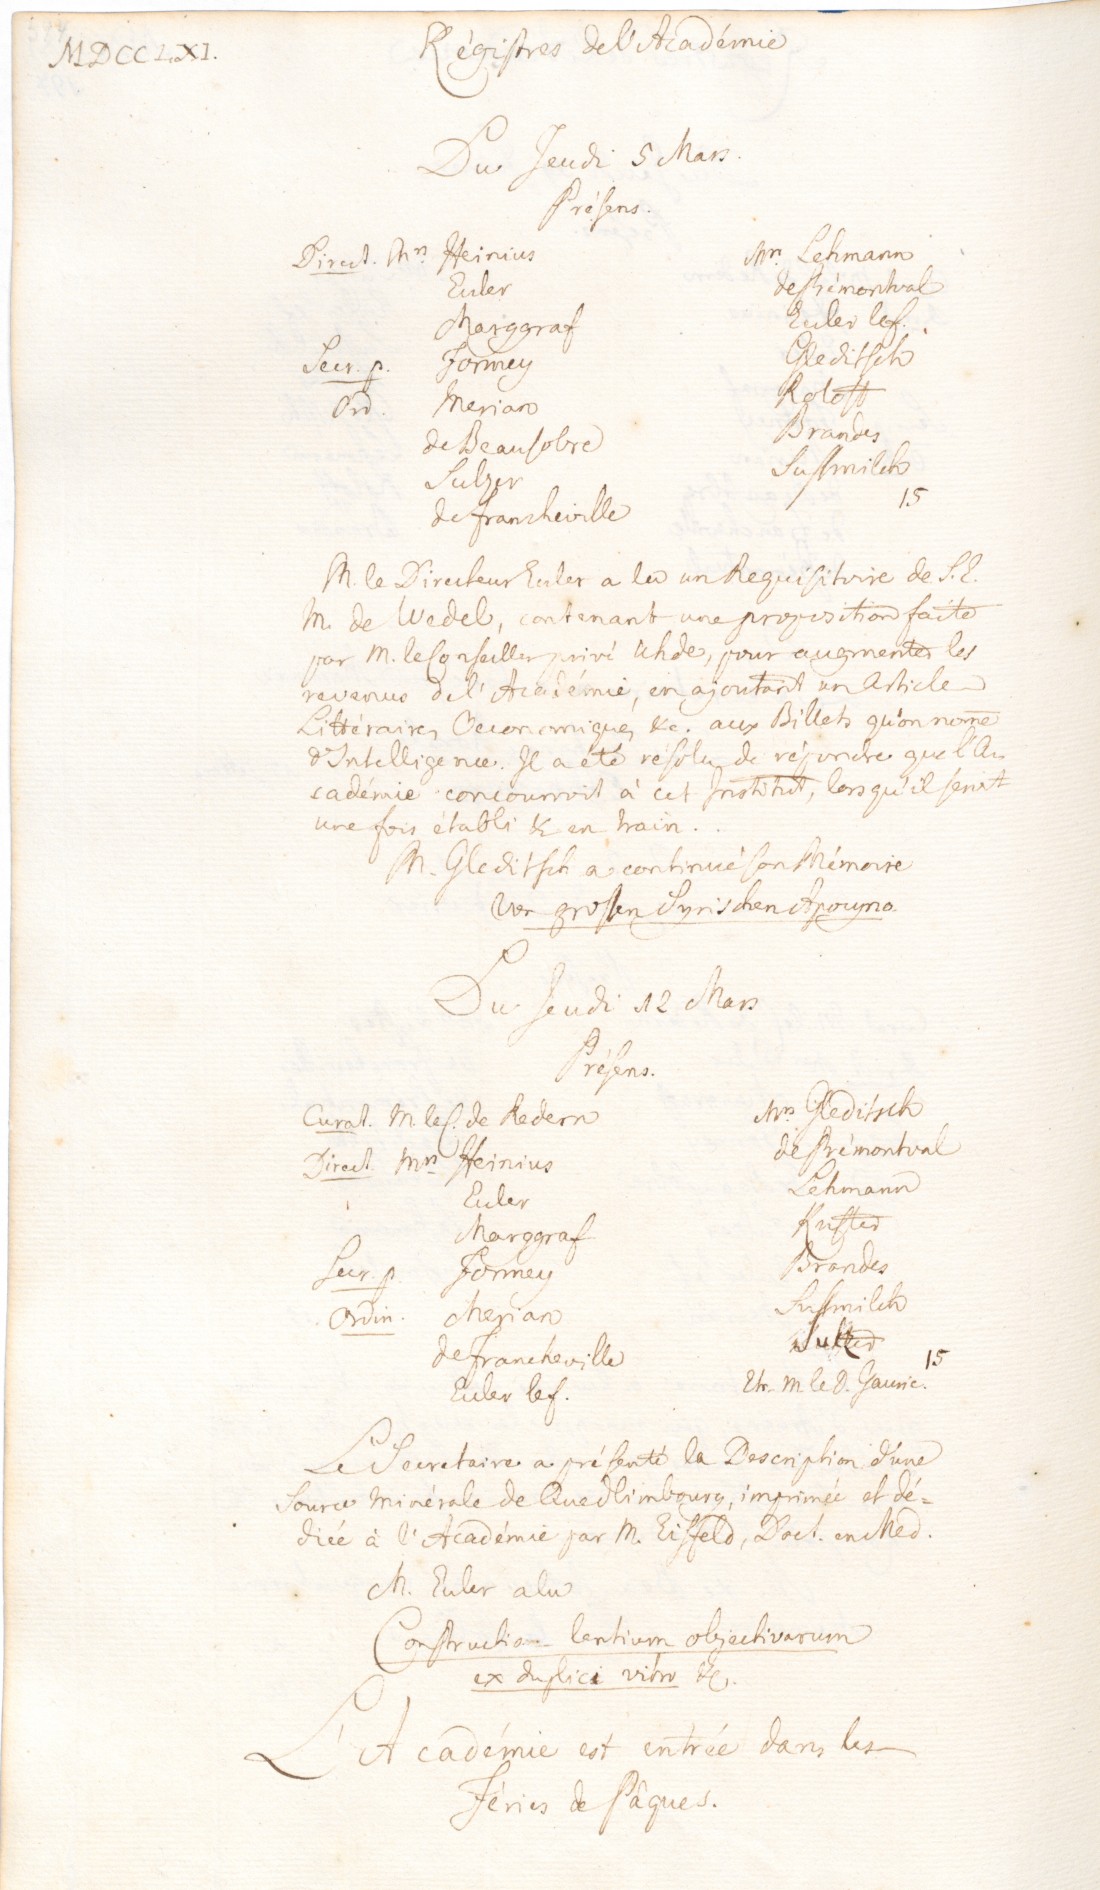 MDCCLXI.
Régistres de l'Académie
Du Jeudi 5 Mars.
Présens.
Direct. Mrs Heinius
Euler
Marggraf
Secr. p. Formey
Ord. Merian
de Beausobre
Sulzer
de Francheville
Mrs Lehmann
de Prémontval
Euler le f.
Gleditsch
Roloff
Brandes
Sussmilch
15
M. le Directeur Euler a lu un Requisitoire de S. E.
M. de Wedel, contenant une proposition faite
par M. le Conseiller privé Uhde, pour augmenter les
revenus de l'Académie, en ajoutant un Article
Littéraire, Oeconomique, &c. aux Billets qu'on nome
d'Intelligence. Il a été résolu de répondre que l'A-
cadémie concourroit à cet Institut, lorsqu'il seroit
une fois établi & en train.
M. Gleditsch a continué son Mémoire
grossen Syrischen Apocyno.
Du Jeudi 12 Mars
Présens.
Curat. M. le C. de Redern
Direct. Mrs Heinius
Euler
Marggraf
Secr. p. Formey
Ordin. Merian
de Francheville
Euler le f.
Mrs Gleditsch
de Prémontval
Lehmann
Kuster
Brandes
Sussmilch
Etr. M. le D.
15
Le Secretaire a présenté la Description d'une
Source minérale de Quedlimbourg, imprimée et dé=
diée à l'Académie par M. Eisfeld, Doct. en Med.
M. Euler a lu
Constructio lentium objectivarum
ex duplici vitro &c.
L'Académie est entrée dans les
Féries de Pâques.